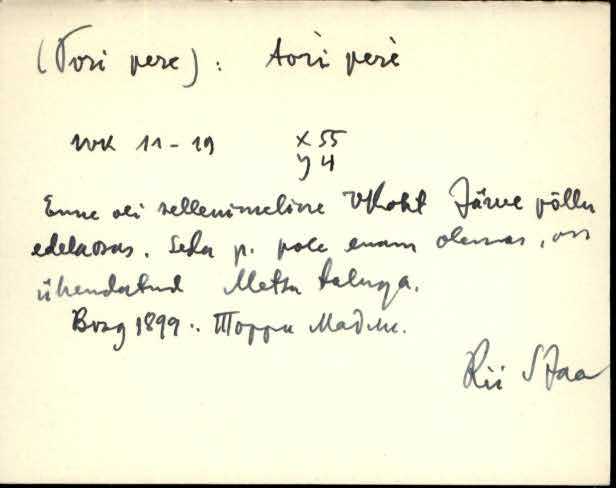 (Tori pere): tori̬ perè
NK 11-19 x 55
y 4
Enne oli sellenimeline Vkoht Järve põllu
edelaosas. Seda p. pole enam olemas, on
ühendatud Metsa taluga.
Borg 1899: Торри Мадли.
Rii